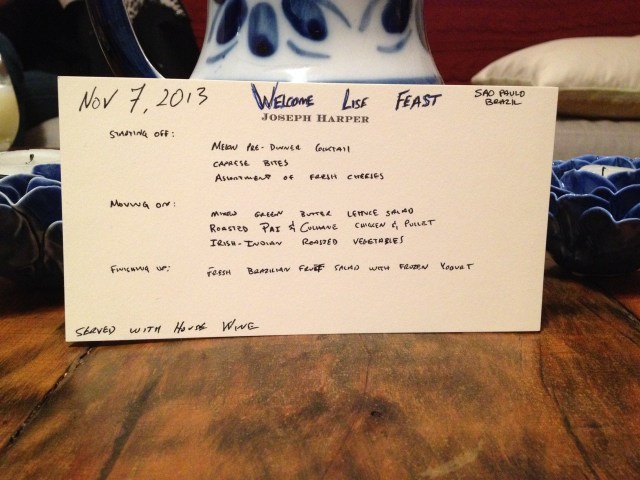 Nov 7, 2013 Welcome Lise Feast Sao Paulo
Brazil
Joseph Harper
Starting off:
Melon Pre-Dinner Cocktail
Caprese Bites
Assortment of Fresh Cheeses
Moving on:
Mixed Green Butter Lettuce Salad
Roasted Pai & Chicken &
Irish-Indian Roasted Vegetables
Finishing up:
Fresh Brazilian Fruit Salad with Frozen Yogurt
Served with House Wine